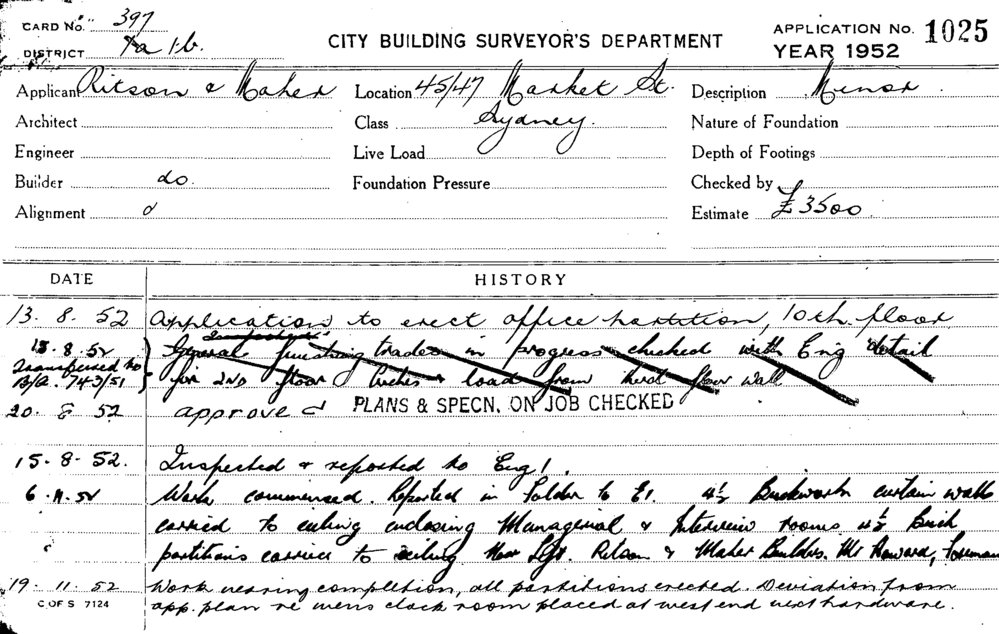 CARD No. 397
DISTRICT
CITY BUILDING SURVEYOR'S DEPARTMENT
APPLICATION No. 1025
YEAR 1952
Applicant Ritson & Maher
Location 45/47 Market St.
Description Minor.
Architect
Class Sydney.
Nature of Foundation
Engineer
Live Load
Depth of Footings
Builder do.
Foundation Pressure
Checked by
Alignment
Estimate £3500
DATE HISTORY
13. 8. 52 Application to erect office partition, 10th floor
15.8.52 General finishing trades in progress checked with Eng detail
Transferred to
B/A. 743/51 for 2nd floor & load from third floor wall
20. 8 52 approved PLANS & SPECN. ON JOB CHECKED
15-8-52. Inspected & reported to Eng 1.
6.11.52 Work commenced. Reported in Folder to E1. 4½ Brickwork curtain walls
carried to ceiling enclosing Managerial & Interview rooms 4½ Brick
partitions carried to ceiling Ritson & Maher Builders. Mr Howard, Foreman
19. 11. 52 Work nearing completion, all partitions erected. Deviation from
C OF S 7124 app. plan re mens cloak room placed at west end next hardware.